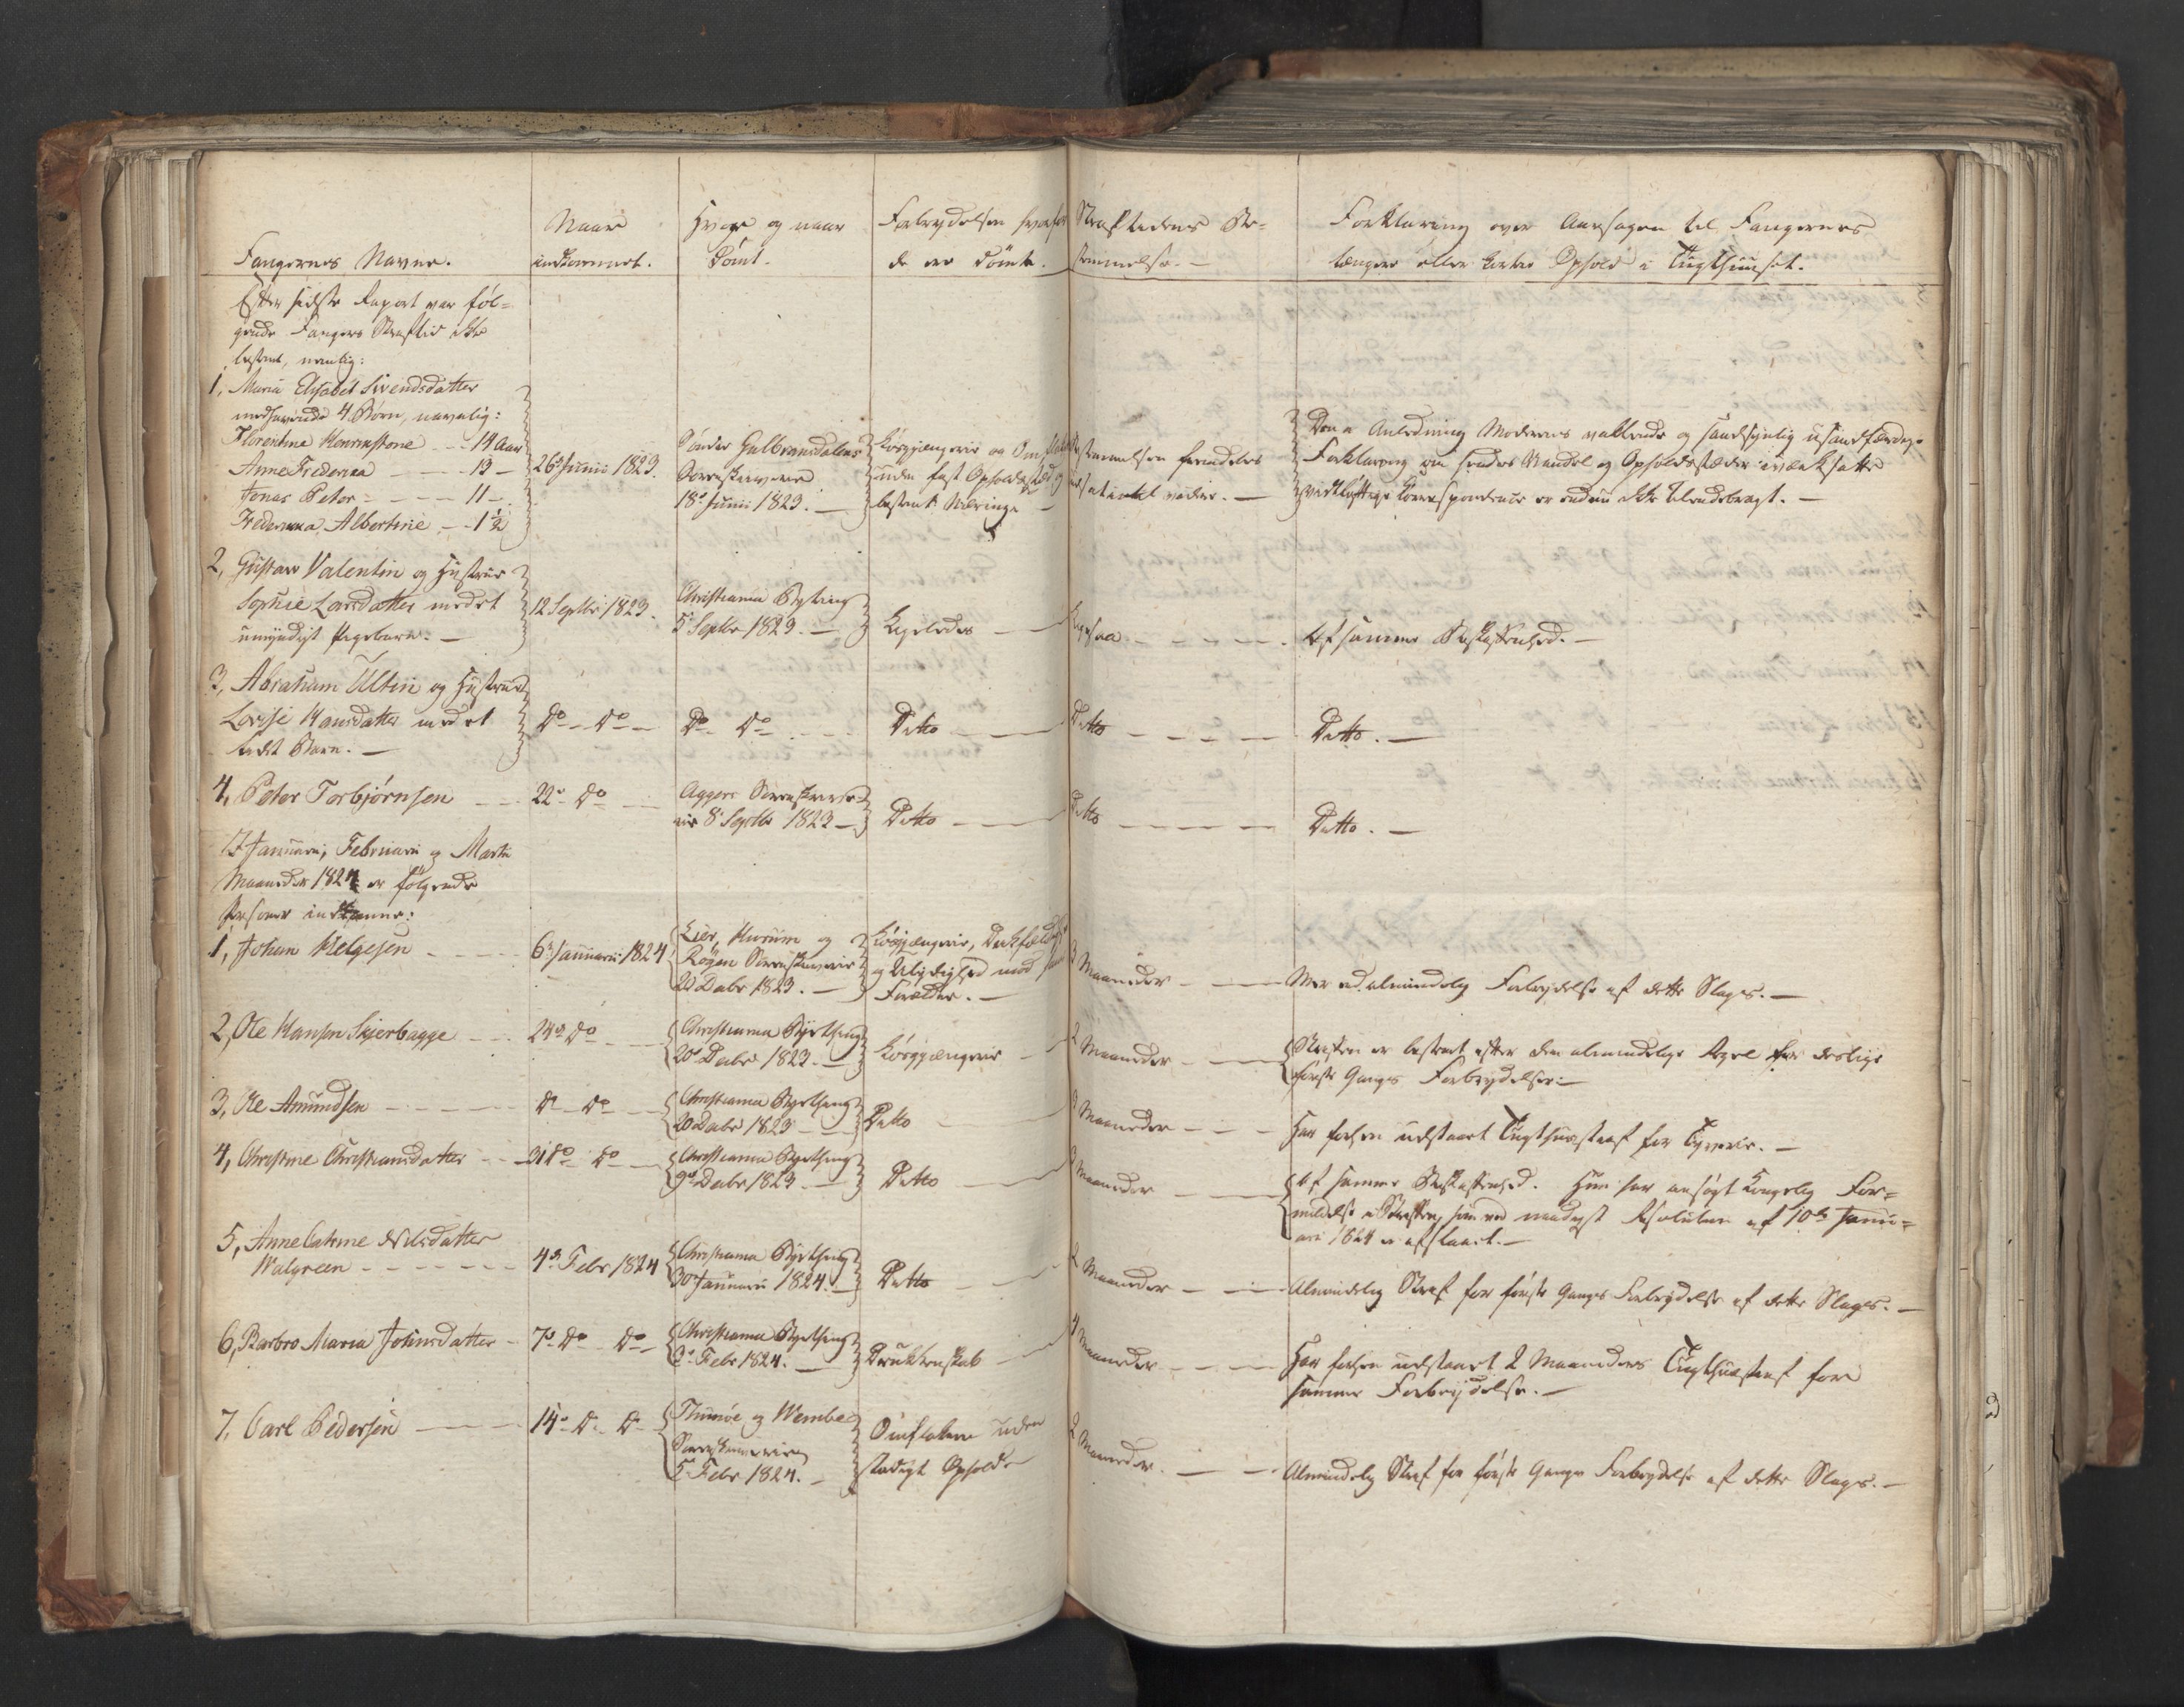 Fangernes Navne.
Naar
indkommet.
Hvor og naar
Dömt.
Forbrydelsen hvorfor
de ere dömte.
Straftidens Be-
stemmelse.
Forklaring over Aarsagen til Fangernes
længere eller kortere Ophold i Tugthuuset.
Efter sidste Raport var föl-
gende Fangers Straftid ikke
bestemt, nemlig:
1, Maria Elisabet Svendsdatter
medhavende 4 Børn, navnlig:
Florentine - - 14 Aar
Anne Fredricka - - - 13 -
Jonas Peter - - - - 11 -
Fredericka Albertine - - 1½
26de Junii 1823.
Sönder Gulbrandsdalens
Sorenskriverie
18de Junii 1823.
Løsgjængerie og Omflakken
uden fast Opholdssted og
bestemt Næring
Bestemmelsen fremdeles
Den i Anledning Moderens vaklende og sandsynlig usandfærdige
Forklaring om hendes Vandel og Opholdssteder iværksatte
vidtløftige Correspondence er endnu ikke tilendebragt.
2, Gustav Valentin og Hustrue
Sophie Larsdatter med et
umyndigt Pigebarn.
12 Septbr 1823.
Christiania Bything
5 Septbr 1823.
Ligeledes
Ligesaa
Af samme Beskaffenhed.
3, Abraham Ultin og Hustrue
Lovise Hansdatter med et
spædt Barn.
Do - Do
Do Do
Detto
Detto
Detto.
4, Peter Torbjørnsen
22de Do
Aggers Sorenskrive-
rie 8 Septbr 1823
Detto
Detto
Detto.
I Januari, Februari og Martii
Maaneder 1824 er følgende
Personer indkomne:
1, Johan Helgesen
6 Januari 1824
Lier, Hurum og
Røgen Sorenskriverie
22 Decbr 1823.
Løsgjængerie, Drikfældighed
og Ulydighed mod sine
Forældre.
3 Maaneder
Mer end almindelig Forbrydelse af dette Slags.
2, Ole Hansen Skjerbagge
24de Do
Christiania Byething
20de Decbr 1823.
Løsgjængerie
2 Maaneder
Straffen er bestemt efter den almindelige Regel for deslige
første Gangs Forbrydelser.
3, Ole Amundsen
Do Do
Christiania Byething
20 Decbr 1823
Detto
3 Maaneder
Har forhen udstaaet Tugthusstraf for Tyverie.
4, Christine Christiansdatter
31te Do
Christiania Byething
9de Decbr 1823
Detto
3 Maaneder
Af samme Beskaffenhed. Hun har ansøgt Kongelig For-
mildelse i Straffen, som ved naadigst Resolution af 10de Janu-
ari 1824 er afslaaet.
5, Anne Catrine Nilsdatter
Walgreen
4de Febr 1824
Christiania Byething
30 Januari 1824.
Detto
2 Maaneder
Almindelig Straf for første Gangs Forbrydelse af dette Slags.
6, Barbro Maria Johnsdatter
7de Do Do
Christiania Byething
3de Febr 1824.
Drukkenskab
4 Maaneder
Har forhen udstaaet 2 Maaneders Tugthusstraf for
samme Forbrydelse.
7, Carl Pedersen
14de Do Do
Thunøe og Wembe
Sorenskriverie
5 Febr 1824.
Omflakken uden
stadigt Ophold
2 Maaneder
Almindelig Straf for første Gangs Forbrydelse af dette Slags.